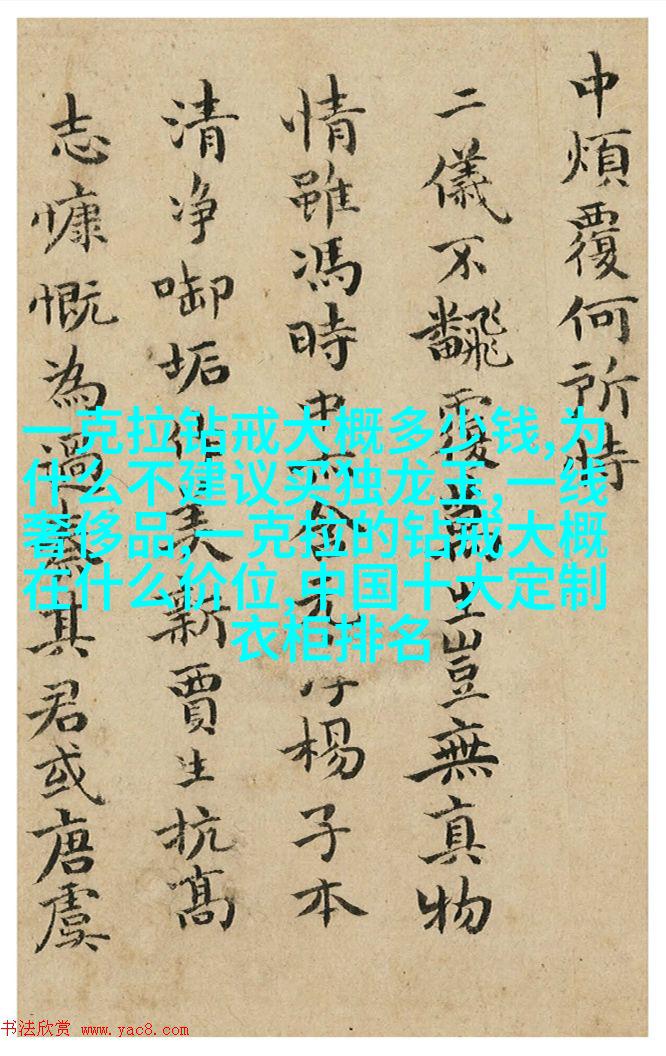 中煩覆何所恃
二儀不飜覆萬生豈無真物
情雖馮時中楊子本
清净啣垢作美新賈生抗高
志慷慨為過其君或唐虞
一克拉钻戒大概多少钱,为
什么不建议买独龙玉,一线
奢侈品,一克拉的钻戒大概
在什么价位,中国十大定制
衣柜排名
书法欣赏 www.yac8.com